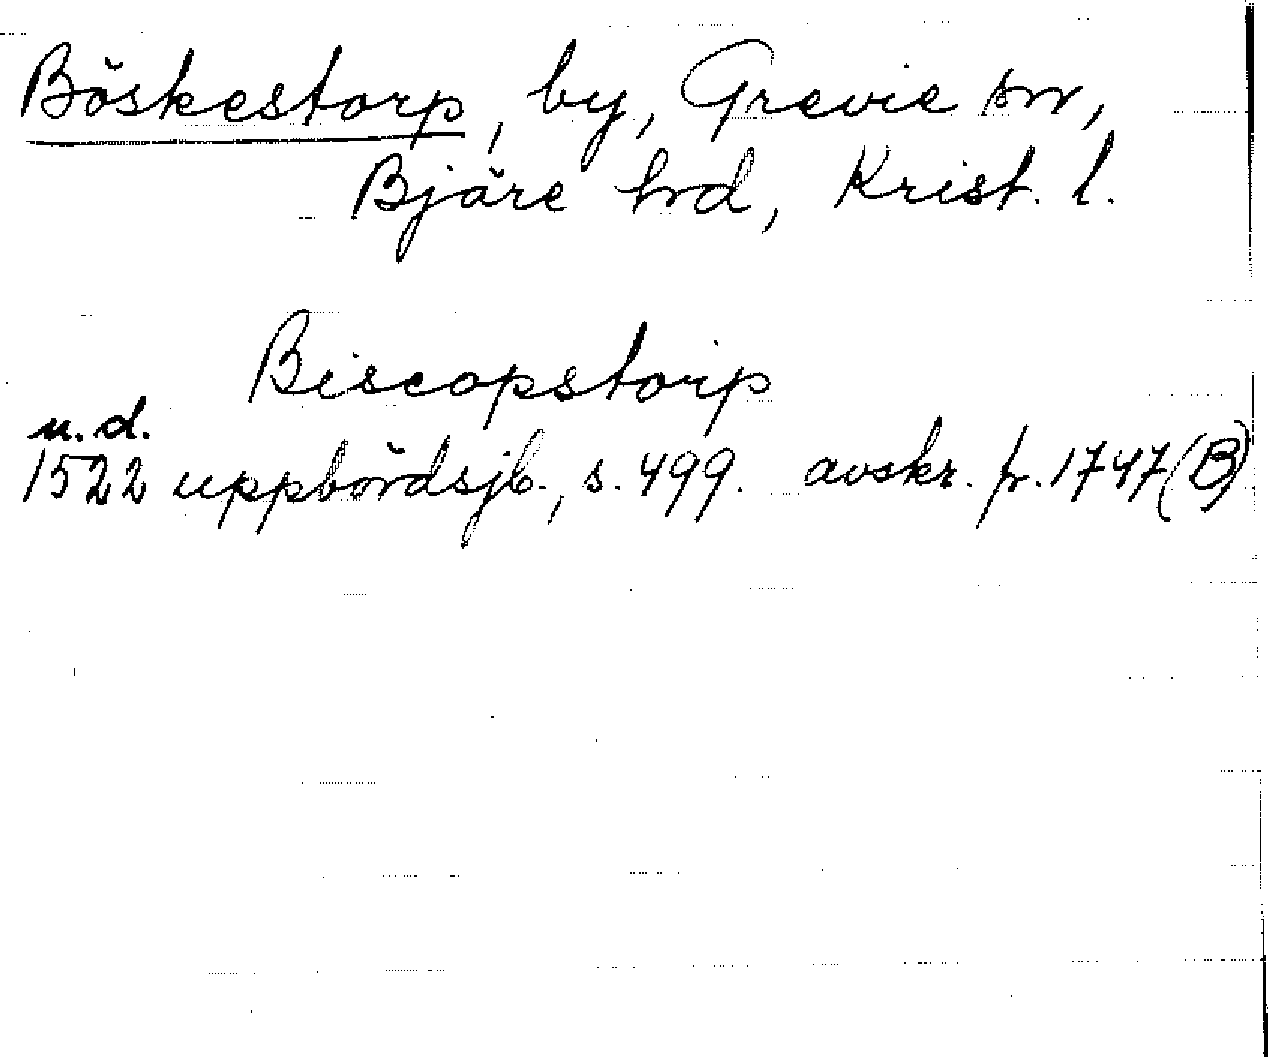 Böskestorp, by, Grevie sn,
Bjäre hrd, Krist. l.
Biscopstorip
u.d.
1522 uppbördsjb., s. 499. avskr. fr. 1747 (B)